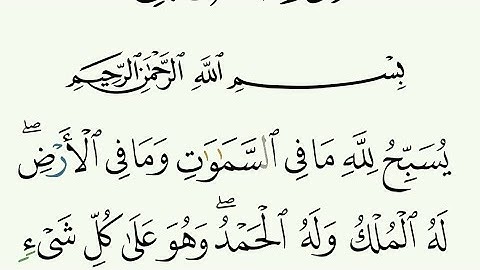 بِسْمِ ٱللَّهِ ٱلرَّحْمَٰنِ ٱلرَّحِيمِ
يُسَبِّحُ لِلَّهِ مَا فِى ٱلسَّمَٰوَٰتِ وَمَا فِى ٱلْأَرْضِ ۖ
لَهُ ٱلْمُلْكُ وَلَهُ ٱلْحَمْدُ ۖ وَهُوَ عَلَىٰ كُلِّ شَىْءٍ